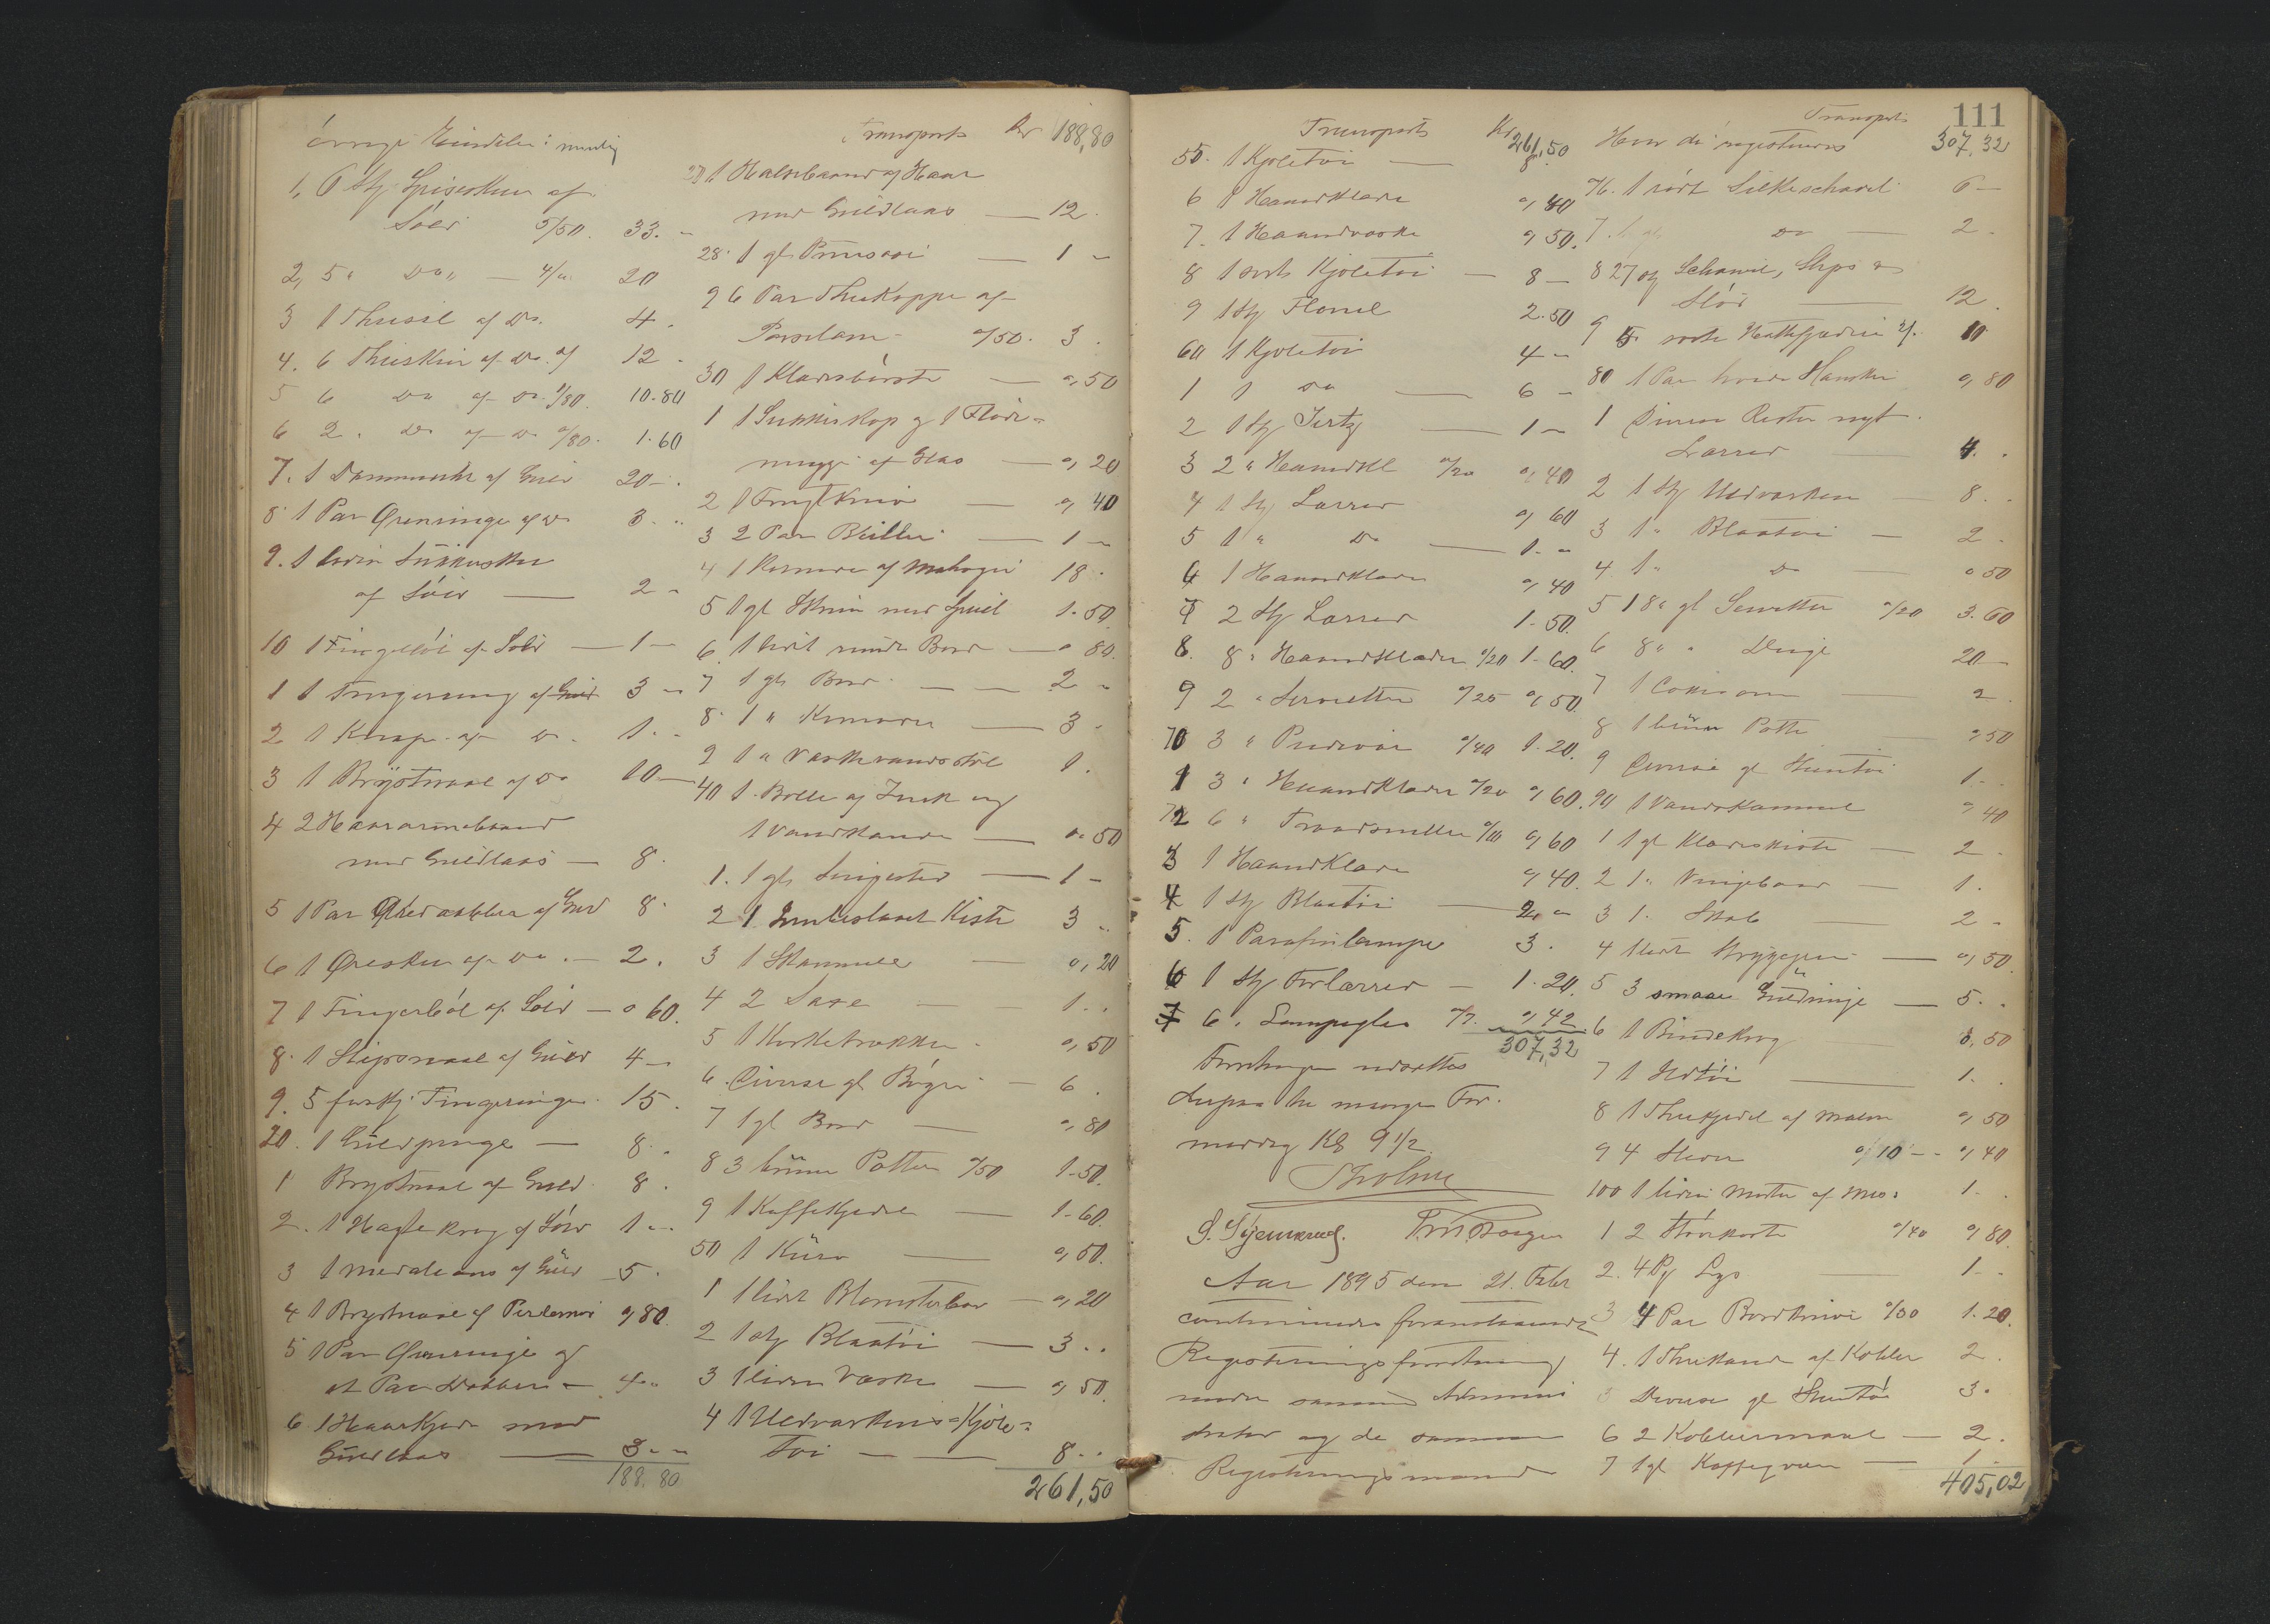 øvrige Eiendele: nemlig
1, 6 Stj: Spiseskeer af
Sölv 5/50. 33. –
2, 5 " Do " – 4/. 20
3 1 Theesil af Do. 4 .
4. 6 Theeskeer af Do. 2/ 12 -
5 6 Do af Do. 1/80. 10.80
6 2. Do af Do 0/80. 1.60
7. 1 Dammeuhr af Guld 20 - .
8. 1 Par Ørenringe af Do 3. "
9. 1 liden Sukkerskee
af Sölv — 2 -
10 1 Fingerböl af Sölv — 1 —
1 1 Fingerring af Guld 3 –
2 1 Knap af Do. 1. -
3 1 Brystnaal af Do 10 —
4 2 Haararmebaand
med Guldlaas — 8.
5 1 Par Øredobber af Guld 8.
6 1 Øreskee af Do. — 2.
7 1 Fingerböl af Sölv — 0 60.
8. 1 Slipsnaal af Guld 4 –
9. 5 forskj. Fingeringe. 15.
20. 1 Guldpenge — 8. .
1 Brystnaal af Guld. 8 .
2. 1 Hægtekrog af Sölv 1 - .
3 1 Medaleons af Guld 5 .
4 1 Brystnaal af Perlemor 0,80.
5 1 Par Ørenringe og
et Par Dobber — 4. -
6 1 Haarkjede med
Guldlaas — 3 - -
188.80
Transport Kr 188,80
27 1 Halsbaand af Haar
med Guldlaas — 12.
28. 1 gl. — 1 –
9 6 Par Theekopper af
Porselæn 0/50. 3 .
30 1 Klædesbörste — 0,50
1 1 Sukkerkop og 1 Flöde-
mugge af Glas — 0,20
2 1 Frugtkniv — 0,40
3 2 Par Briller — 1 –
4 1 Komode af Mahogni 18.
5 1 gl Skrin med Speil 1.50
6. 1 lidet rundt Bord — 0 80.
7 1 gl. Bord. — — 2 –
8. 1 " Komode — 3 .
9 1 " Vaskevandsstol 1 .
40 1 Bolle af Zink og
1 Vandkande — 0.50
1. 1 gl. Sengested — 1 –
2 1 Kiste 3 ..
3 1 Skammel — 0,20
4 2 Saxe — 1 ..
5 1 Korketrækker . 0,50
6. Diverse gl. Böger — 6 .
7 1 gl Bord — 0,80
8 3 brune Potter 0/50 1.50.
9 1 Kaffekjedel — 1.60.
50 1 Kurv — 0,50.
1 1 lidet Blomsterbor — 0,20
2 1 Stj Blaatöi — 3 ..
3 1 liden Væske — 0,50.
4 1 Uldvarkens-Kjole-
töi — — 8 ..
261,50
Transport Kr 261,50
55. 1 Kjoletöi — 8.
6 1 Haandklæde 0,40
7. 1 Haandvæske 0 50.
8 1 sort Kjoletöi — 8 –
9 1 Stj Flonel 2.50
60 1 Kjoletöi 4 –
1 1 Do — 6 –
2 1 Stj Sirtz — 1 –
3 2 " Haandkl 0/20 0,40
4 1 Stj Lærred 0,60
5 1 " Do — 1. -
6 1 Haandklæde 0,40
7 2 Stj Lærred 1.50.
8. 8 " Haandklæder 0/20 1.60.
9 2 " Servietter 0/25 0,50
70 3 " Pudevår 0/40 1.20.
1 3 " Haandklæder 0/20 0,60.
72 6 " Traadsneller 0/10 0,60
3 1 Haandklæde 0,40.
4 1 Stj Blaatöi — 2. -
5. 1 Parafinlampe 3.
6 1 Stj Forlærred — 1.20.
7 6 " Lampeglas 0/7. 0,42
307,32
Forretningen udsættes
derpaa til morgen For-
middag Kl 9 1/2
Aar 1895 den 21. Febr
continueredes foranstaaende
Registreringsforretning
med samme Admini
strator og de samme
Registreringsmænd
111
Transport
Hvor da registreres 307,32
76. 1 rödt Silkeschavel 6 —
7. 1 gl Do — 2 -
8 27 Stj Schavle, Slips og
Slör — 12
9 5 sorte Hattefjædre 2/. 10
80 1 Par hvide Hansker 0,80
1 Diverse Rester nyt
Lærred — 4. .
2 1 Stj Uldvarken — 8. .
3 1 " Blaatöi — 2 -
4. 1 " Do — 0 50
5 18 " gl Servietter 0/20 3.60
6 8 " " Duge 20 —
7 1 — 2
8 1 brun Potte 0,50
9 Diverse gl Steentöi 1. -
90 1 Vandkamme 0,40
1 1 gl Klædeskiste — 2 -
2 1 " — 1.
3 1 " Skab — 2 -
4 1 lidet — 0,50.
5 3 smaae Guldringe — 5 ..
6 1 Bindekrog 0,50
7 1 Ildtöi — 1. .
8 1 Theekjedel af Malm 0,50
9 4 Skeer 0/10 — 0,40
100 1 liden Morter af Mes: 1. .
1 2 0/40 0,80
2. 4 Pg Lys — 1 - -
3 4 Par Bordknive 0/30 1.20.
4. 1 Theekande af Kobber 2 .
5 Diverse gl Steentöi 3.
6 2 Kobbermaal — 2.
7 1 gl Kaffeqværn — 1.
405,02